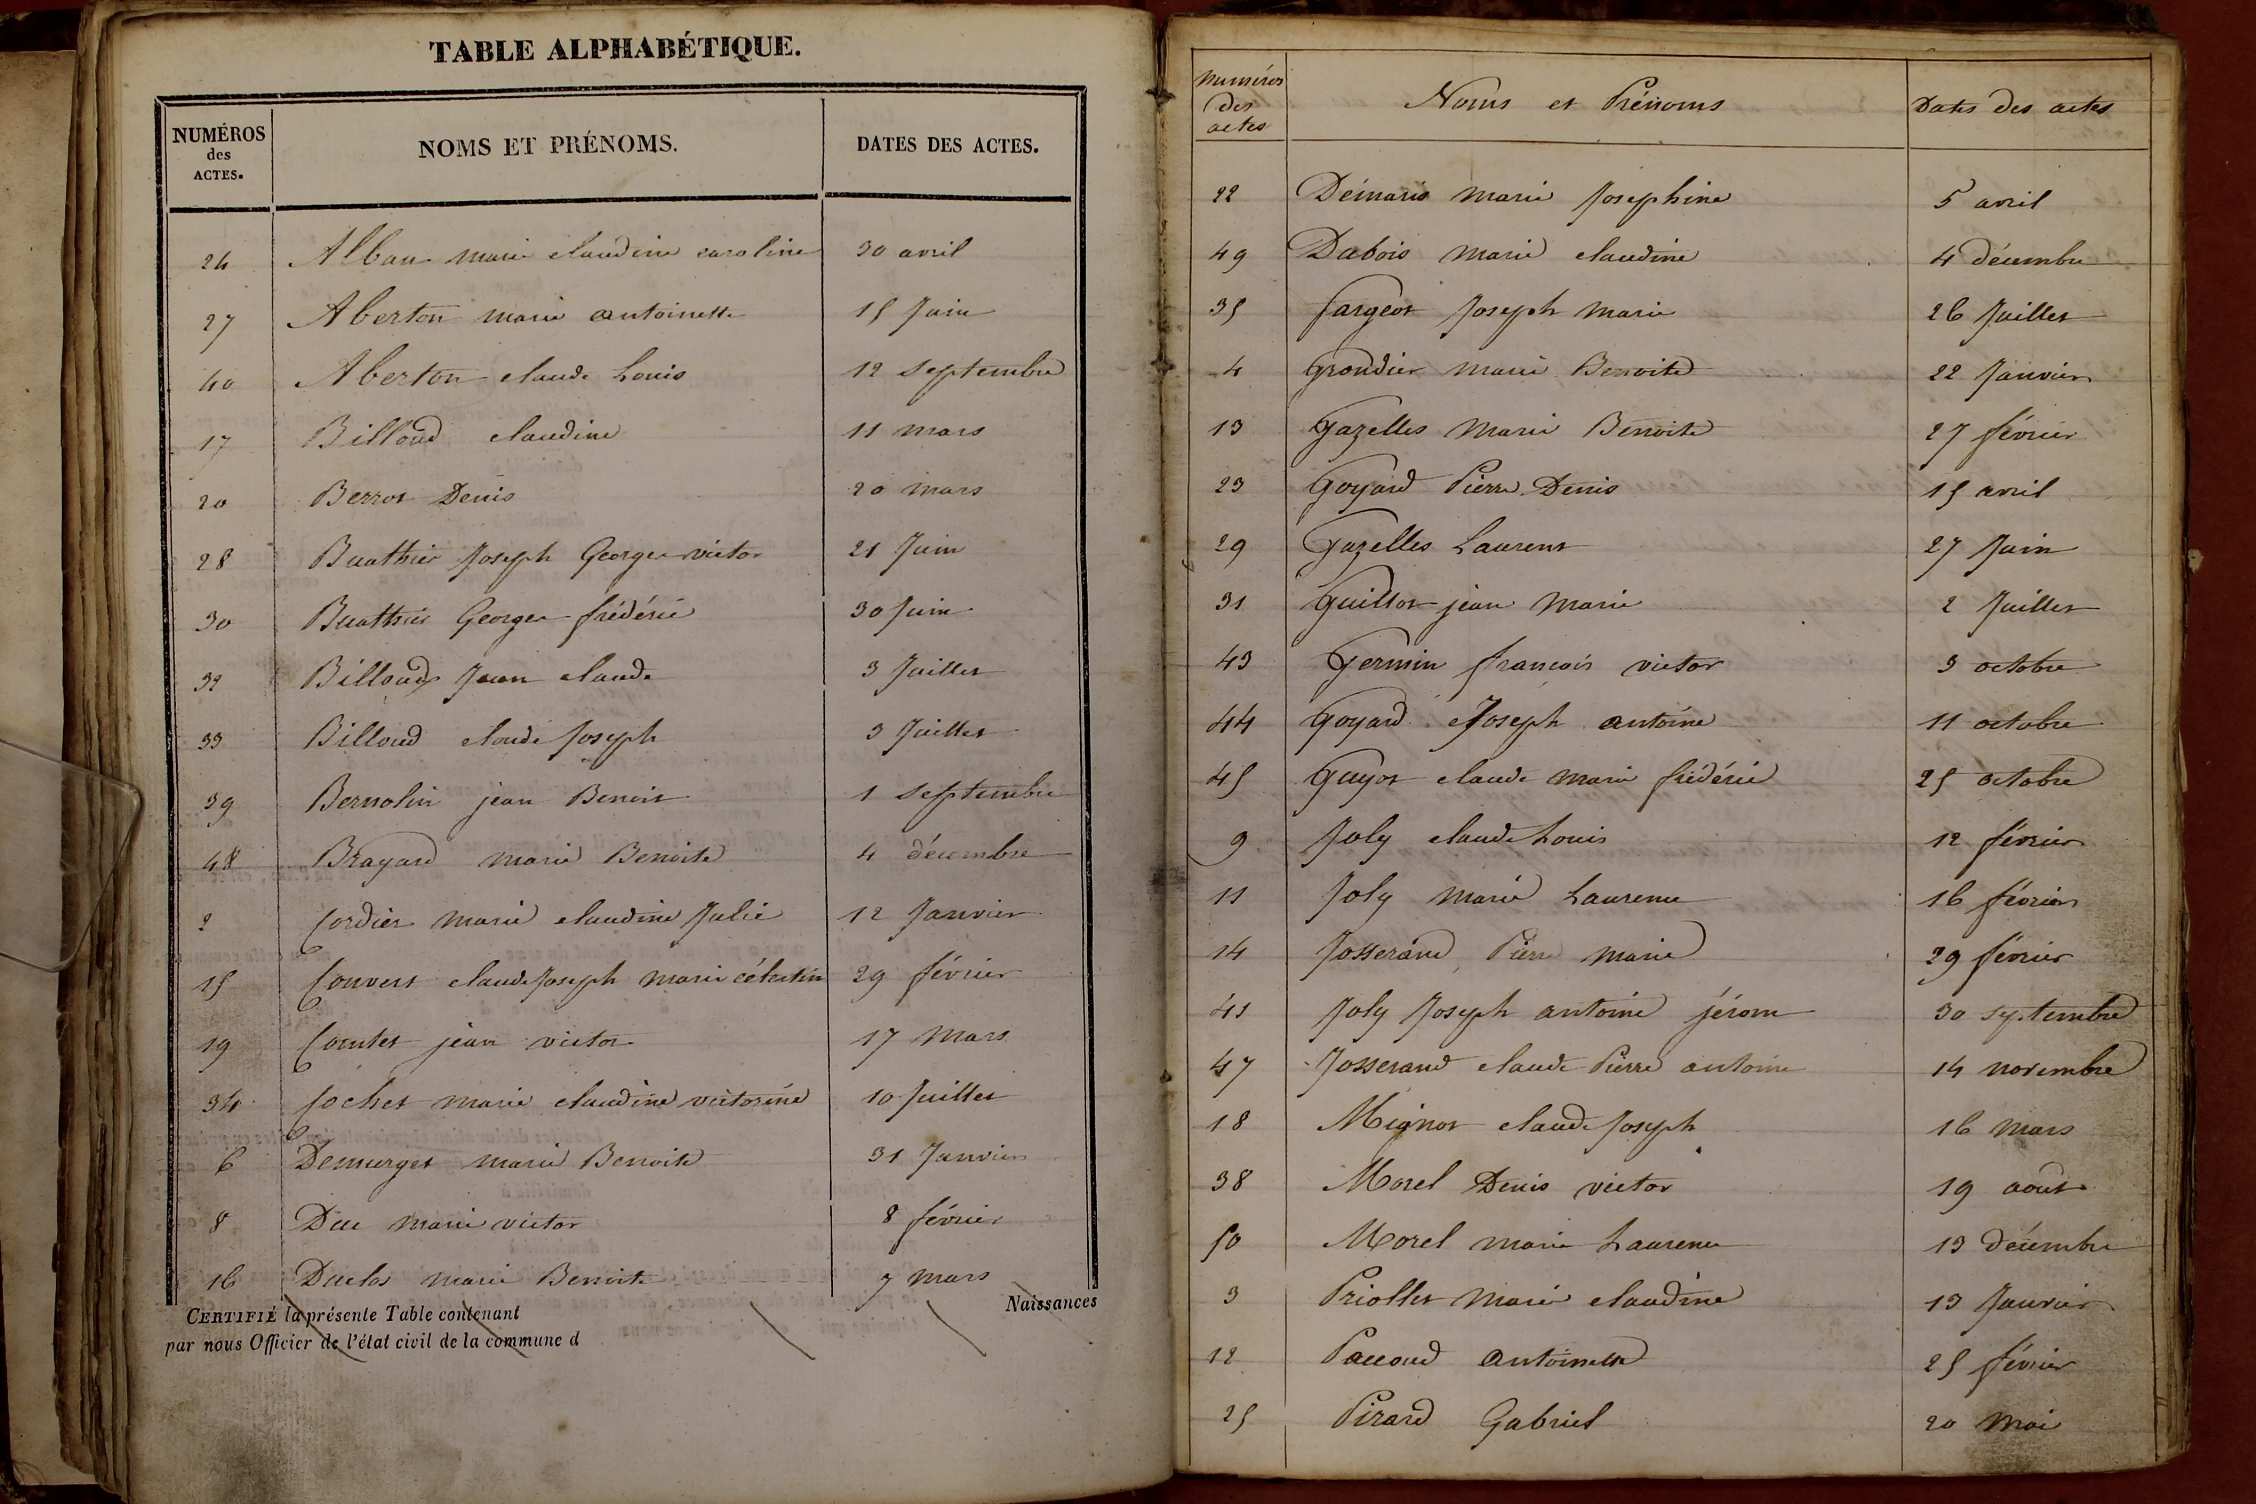 TABLE ALPHABÉTIQUE.
NUMÉROS des ACTES. NOMS ET PRÉNOMS. DATES DES ACTES.
24 Alban marie claudine caroline 30 avril
27 Aberton marie antoinette 15 Juin
40 Aberton claude Louis 12 septembre
17 Billoud claudine 11 mars
20 Berrot Denis 20 mars
28 Buathier Joseph George victor 21 Juin
30 Buathier George frédéric 30 Juin
32 Billoud Jean claude 3 Juillet
33 Billoud claude Joseph 3 Juillet
39 Bernolin jean Benoit 1 septembre
48 Brayard marie Benoite 4 décembre
2 Cordier marie claudine Julie 12 Janvier
15 Convert claude Joseph marie célestin 29 février
19 Comtet jean victor 17 mars
34 Cochet marie claudine victorine 10 Juillet
6 Demurget marie Benoite 31 Janvier
8 Duc marie victor 8 février
16 Duclos marie Benoite 7 mars
CERTIFIÉ la présente Table contenant Naissances
par nous Officier de l'état civil de la commune d
Numéros des actes Noms et Prénoms Dates des actes
22 Démaris marie Josephine 5 avril
49 Dubois marie claudine 4 décembre
35 fargeot Joseph marie 26 Juillet
4 Grondier marie Benoite 22 Janvier
13 Gazelles marie Benoite 27 février
23 Goyard Pierre Denis 15 avril
29 Gazelles Laurent 27 Juin
31 Guillot jean marie 2 Juillet
43 Germin francois victor 3 octobre
44 Goyard Joseph antoine 11 octobre
45 Guyot claude marie frédéric 25 octobre
9 Joly claude Louis 12 février
11 Joly marie Laurence 16 février
14 Josserand Pierre marie 29 février
41 Joly Joseph antoine jérome 30 septembre
47 Josserand claude Pierre antoine 14 novembre
18 Mignot claude Joseph 16 mars
38 Morel Denis victor 19 août
50 Morel marie Laurence 13 décembre
3 Priollet marie claudine 13 Janvier
12 Paccoud antoinette 25 février
25 Pirard Gabriel 20 mai